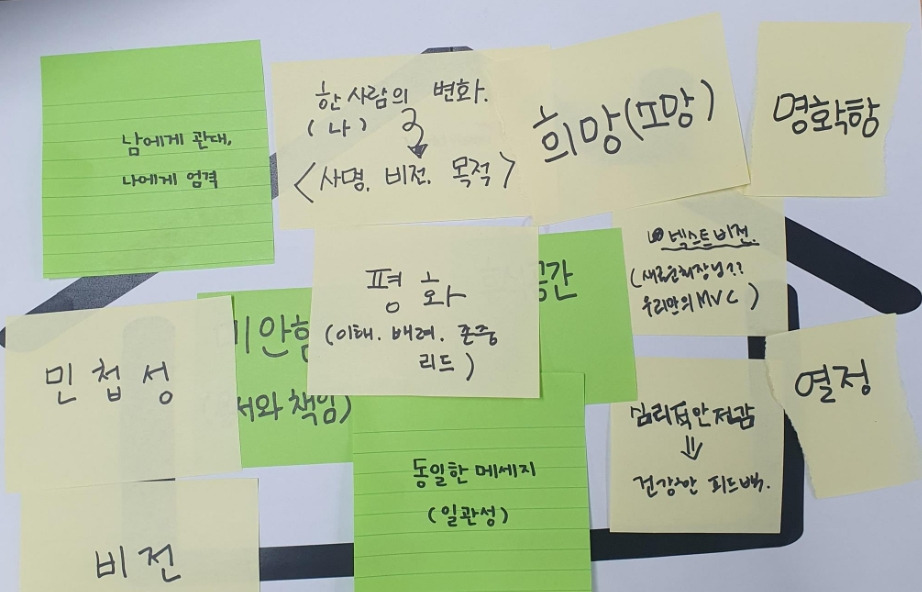 남에게 관대,
나에게 엄격
한 사람의 변화.
(나)
<사명. 비전. 목적>
희망(소망)
명확함
넥스트비전.
우리만의 MVC)
평화
(이해. 배려. 존중
리드)
공간
미안함
책임)
민첩성
열정
심리적안전감
⇓
건강한 피드백.
동일한 메세지
(일관성)
비전